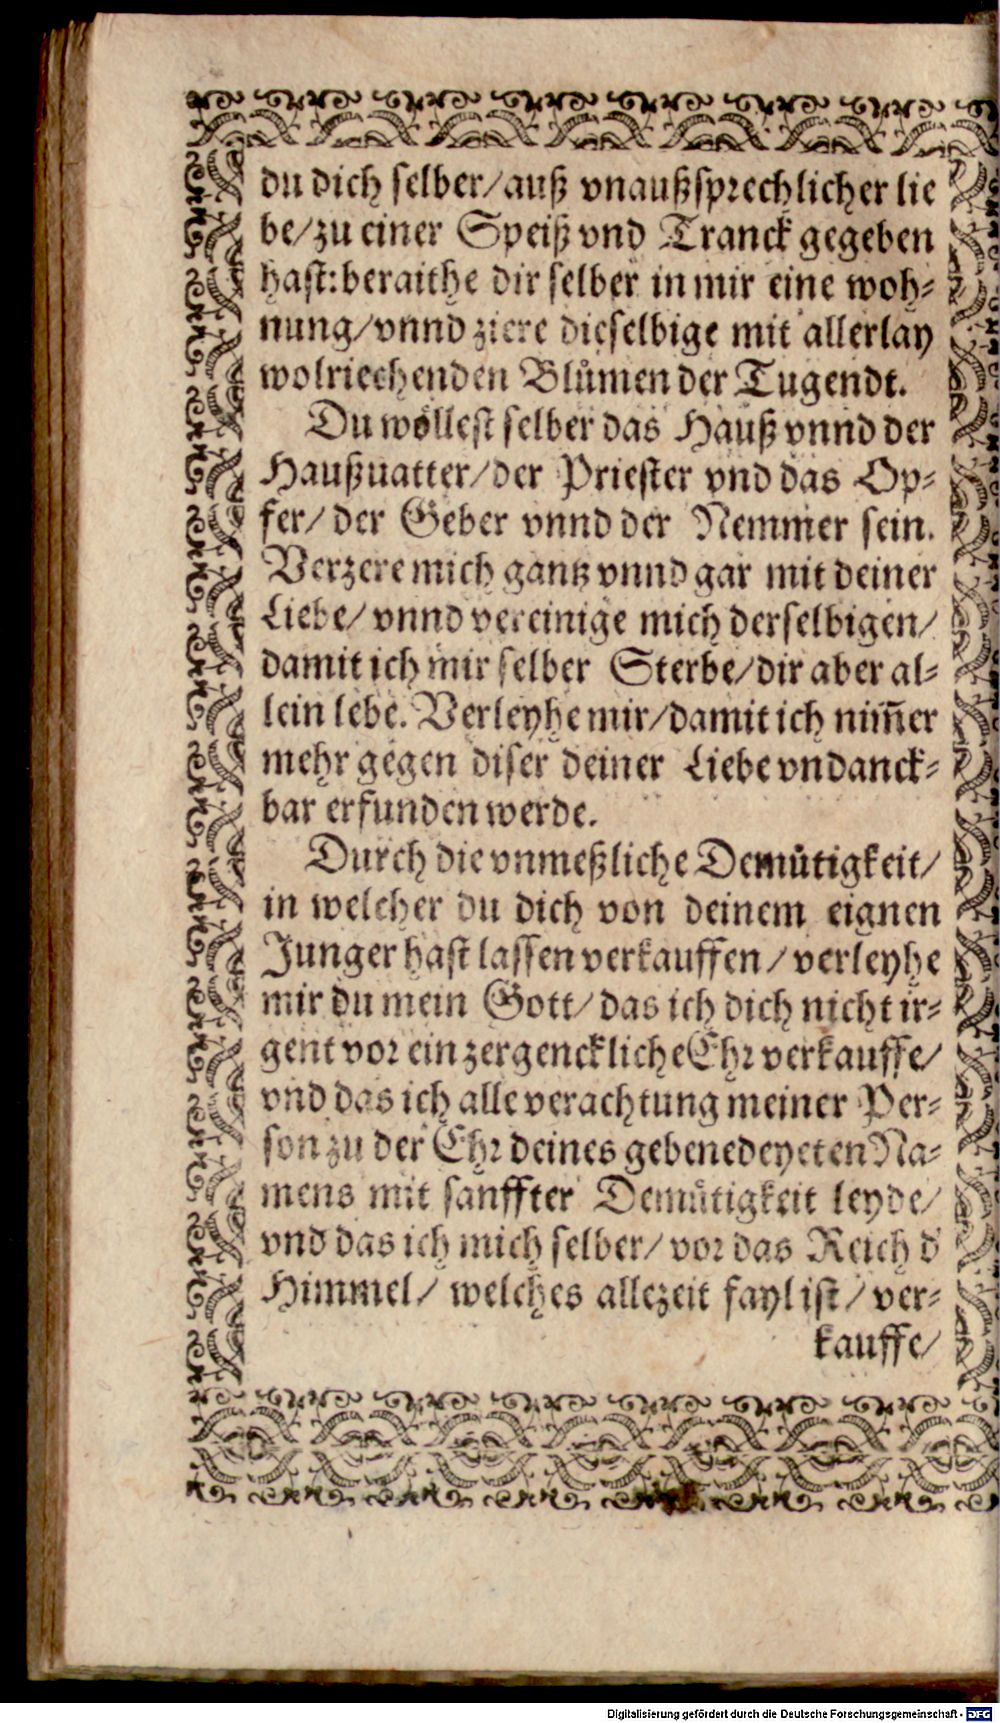 du dich selber/auß vnaußsprechlicher lie
be/zu einer Speiß vnd Tranck gegeben
hast:beraithe dir selber in mir eine woh⸗
nung/vnnd ziere dieselbige mit allerlay
wolriechenden Blůmen der Tugendt.
Du wöllest selber das Hauß vnnd der
Haußuatter/der Priester vnd das Op⸗
fer/der Geber vnnd der Nemmer sein.
Verzere mich gantz vnnd gar mit deiner
Liebe/vnnd vereinige mich derselbigen/
damit ich mir selber Sterbe/dir aber al⸗
lein lebe. Verleyhe mir/damit ich nim̃er
mehr gegen diser deiner Liebe vndanck⸗
bar erfunden werde.
Durch die vnmeßliche Demůtigkeit/
in welcher du dich von deinem eignen
Junger hast lassen verkauffen/verleyhe
mir du mein Gott/das ich dich nicht ir⸗
gent vor ein zergenckliche Ehr verkauffe/
vnd das ich alle verachtung meiner Per⸗
son zu der Ehr deines gebenedeyeten Na⸗
mens mit sanffter Demůtigkeit leyde/
vnd das ich mich selber/vor das Reich d'
Himmel/welches allezeit fayl ist/ver⸗
kauffe/
Digitalisierung gefördert durch die Deutsche Forschungsgemeinschaft - DFG